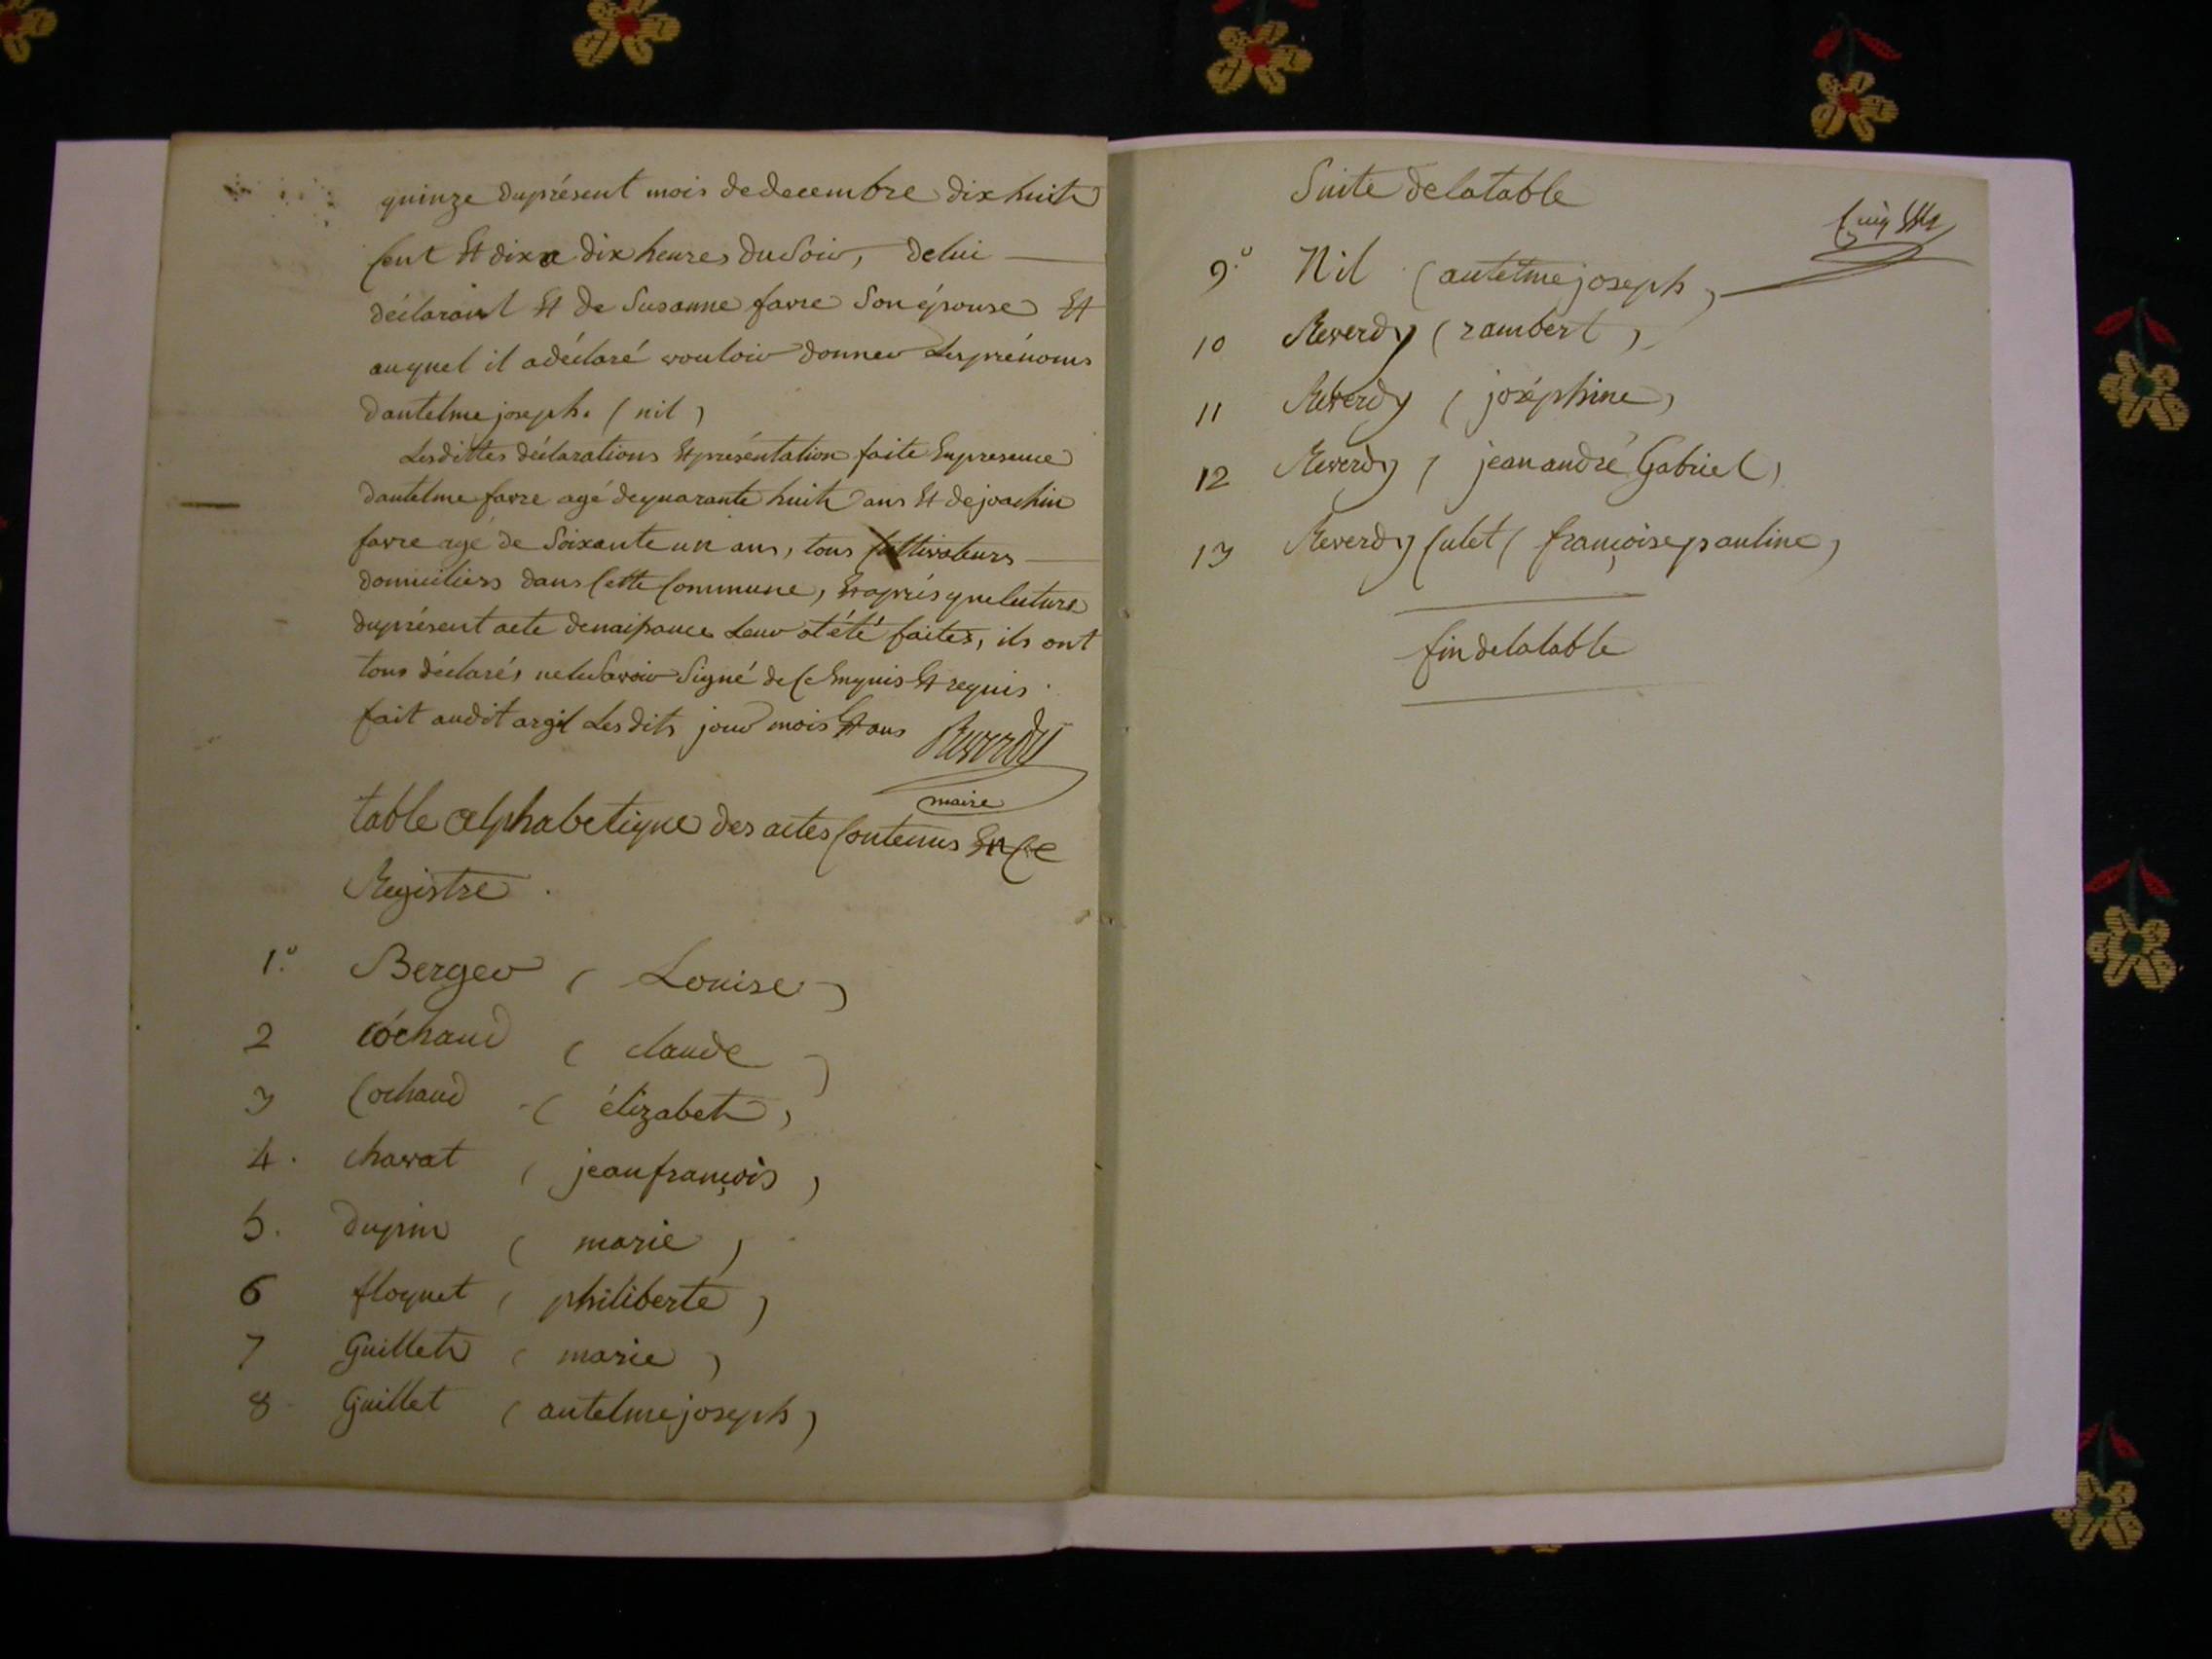 quinze duprésent mois dedecembre dix huit
Cent Et dix a dix heures du Soir, delui
déclarant Et de Susanne favre Son épouse Et
auquel il adéclaré vouloir donner Les prénoms
dantelme joseph. (nil)
Lesdittes déclarations Et présentation faite En presence
dantelme favre agé dequarante huit ans Et de joachin
favre agé de Soixante un ans, tous Cultivateurs
domiciliers dans Cette Commune, Et après que lecture
duprésent acte denaissance Leur at été faites, ils ont
tous déclarés ne le Savoir Signé de Ce Enquis Et requis.
fait audit argil Les dits jour mois Et ans Reverdy
maire
table alphabetique des actes Contenus En Ce
Registre.
1.° Berger (Louise)
2 Cochaud (claude)
3 Cochaud (élizabet)
4. charvat (jean françois)
5. dupin (marie)
6 floquet (philiberte)
7 Guillet (marie)
8 Guillet (antelme joseph)
Suite de la table
9.° Nil (antelme joseph)
10 Reverdy (rambert)
11 Reverdy (joséphine)
12 Reverdy (jean andré Gabriel)
13 Reverdy Culet (françoise pauline)
fin de la table